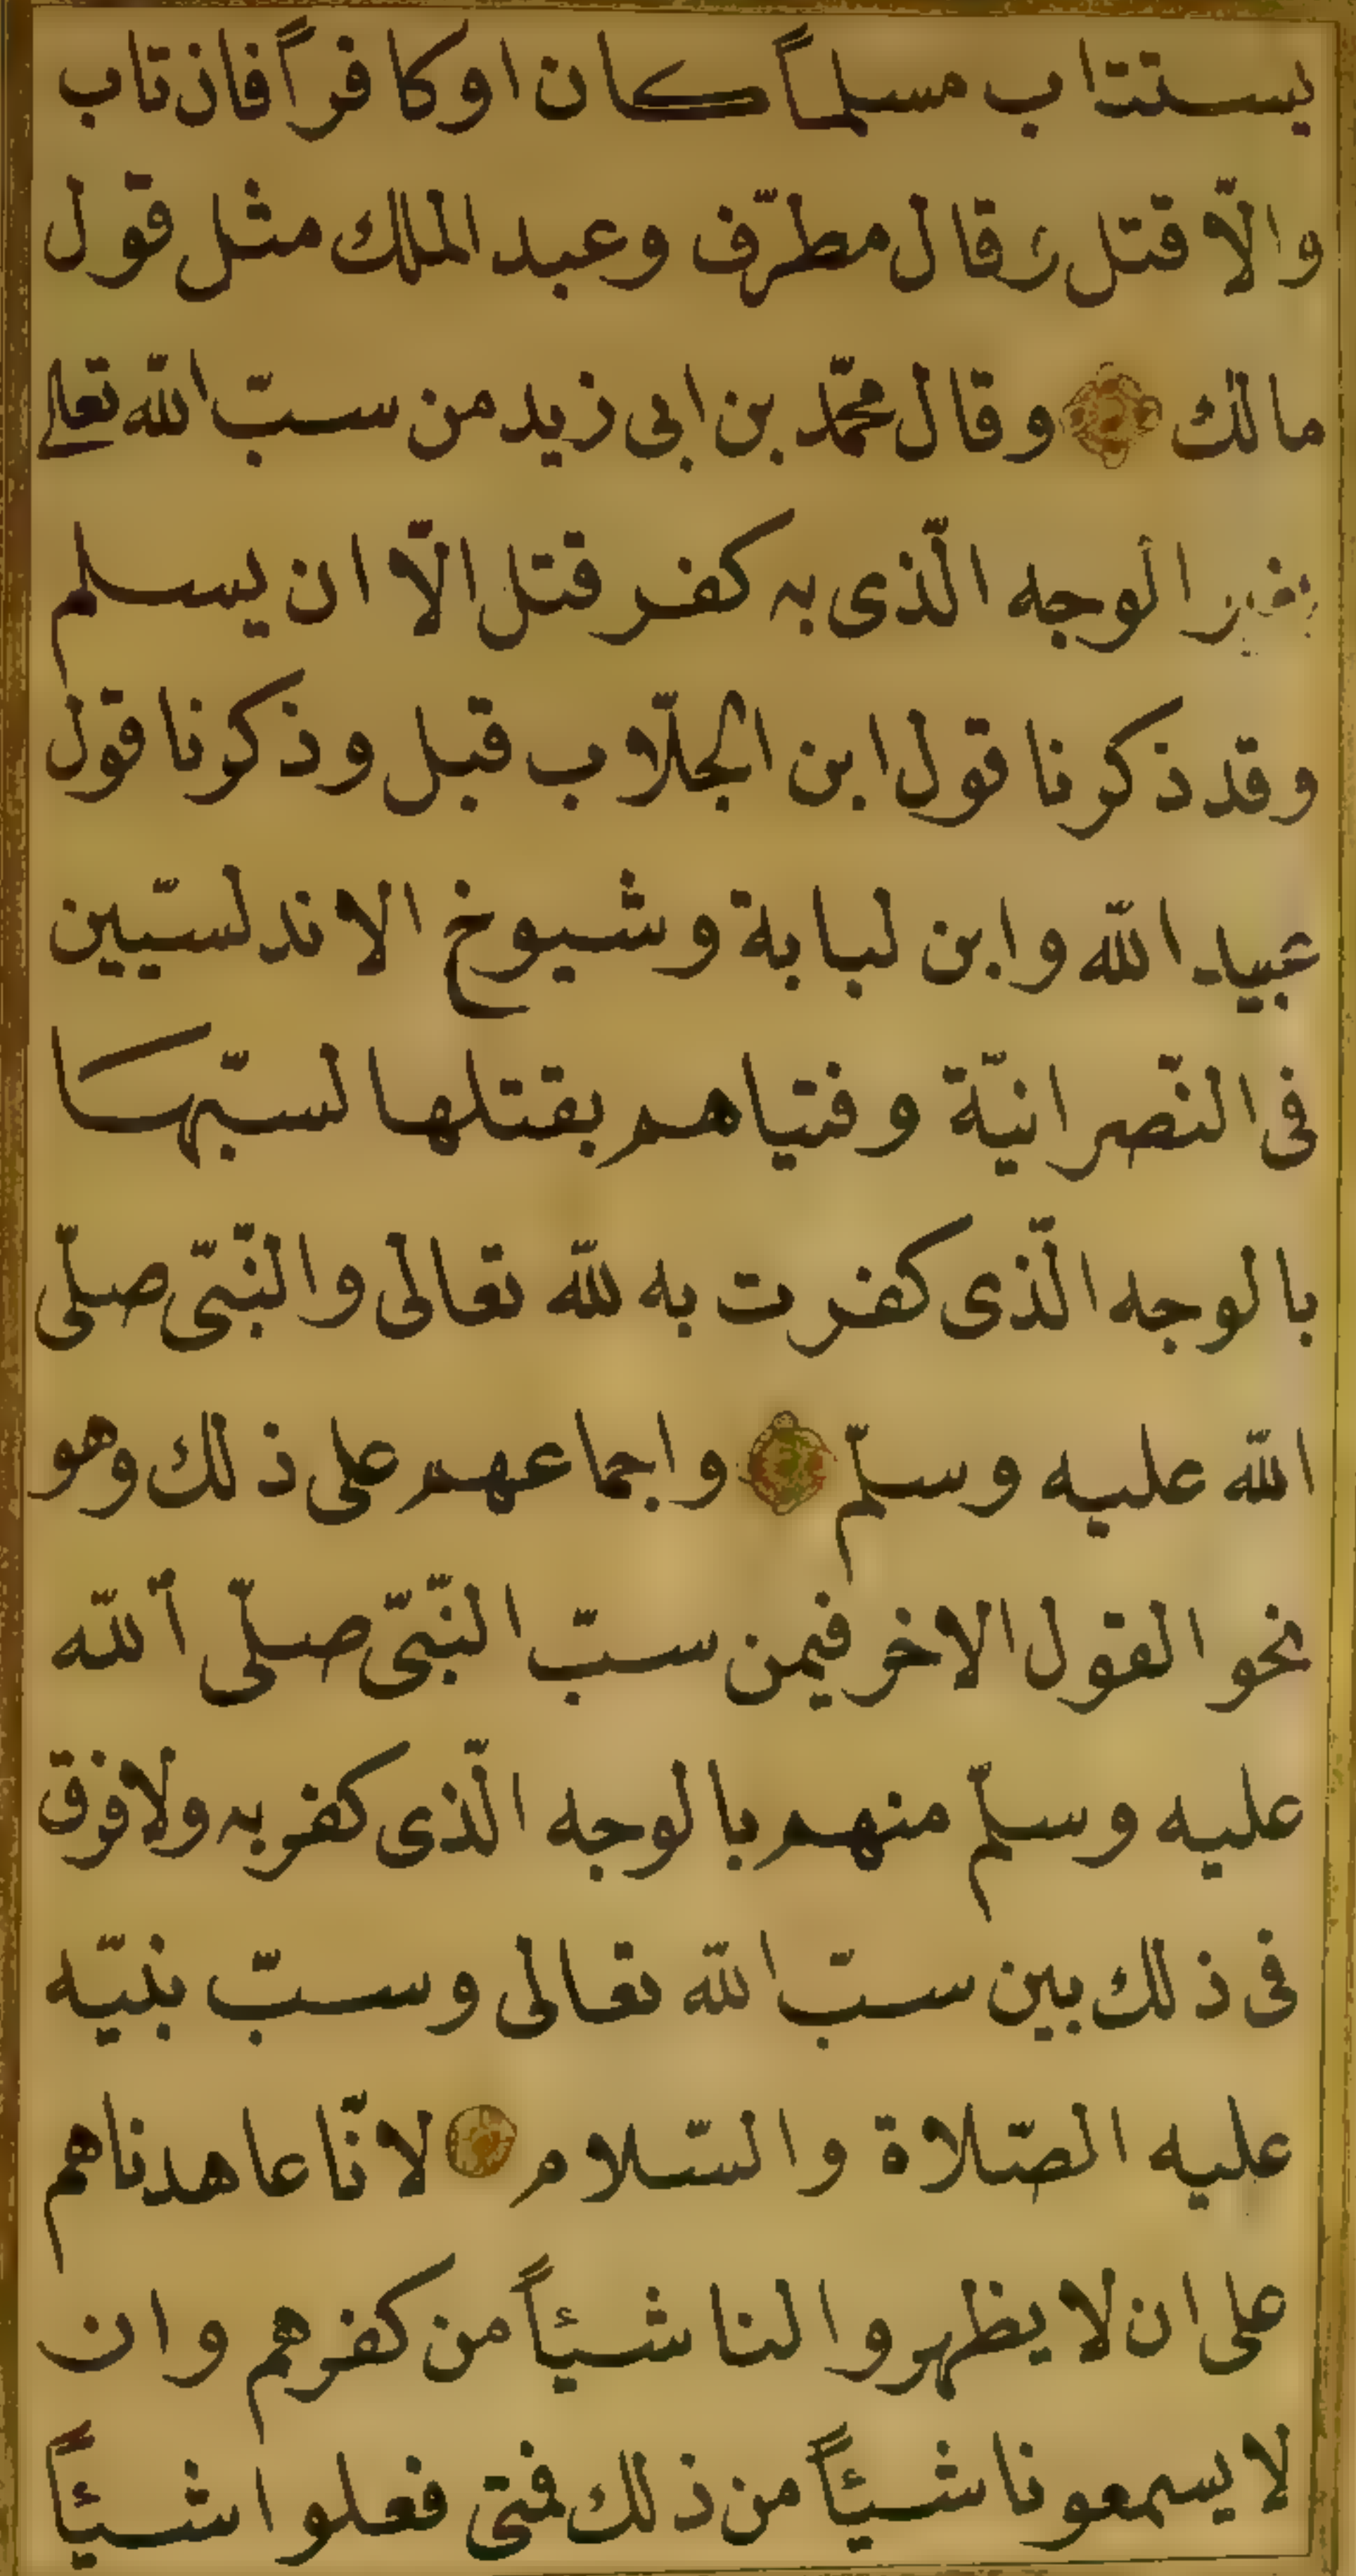 يستتاب مسلماً كان او كافراً فان تاب
والّا قتل وقال مطرّف وعبد الملك مثل قول
مالك وقال محمّد بن ابى زيد من سبّ الله تعالى
بغير الوجه الّذى به كفر قتل الّا ان يسلم
وقد ذكرنا قول ابن الجلّاب قبل وذكرنا قول
عبيد الله وابن لبابة وشيوخ الاندلسيّين
فى النّصرانيّة وفتياهم بقتلها لسبّها
بالوجه الّذى كفرت به لله تعالى والنّبىّ صلّى
الله عليه وسلّم واجماعهم على ذلك وهو
نحو القول الاخر فيمن سبّ النّبىّ صلّى ألله
عليه وسلّم منهم بالوجه الّذى كفر به ولا فرق
فى ذلك بين سبّ الله تعالى وسبّ نبيّه
عليه الصّلاة والسّلام لانّا عاهدناهم
على ان لا يظهروا لنا شيئاً من كفرهم وان
لا يسمعونا شيئاً من ذلك فمتى فعلوا شيئاً